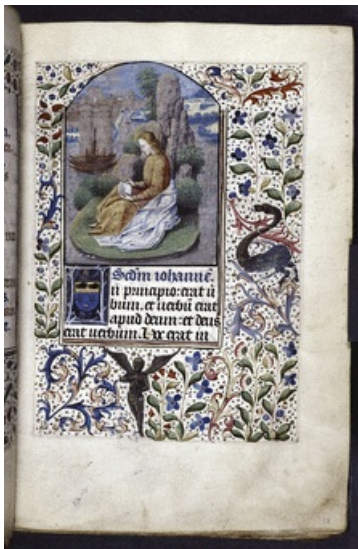 Scdm iohannē.
n principio: erat ū
bum. et uerbū erat
apud deum: et deus
erat uerbum. hoc erat in